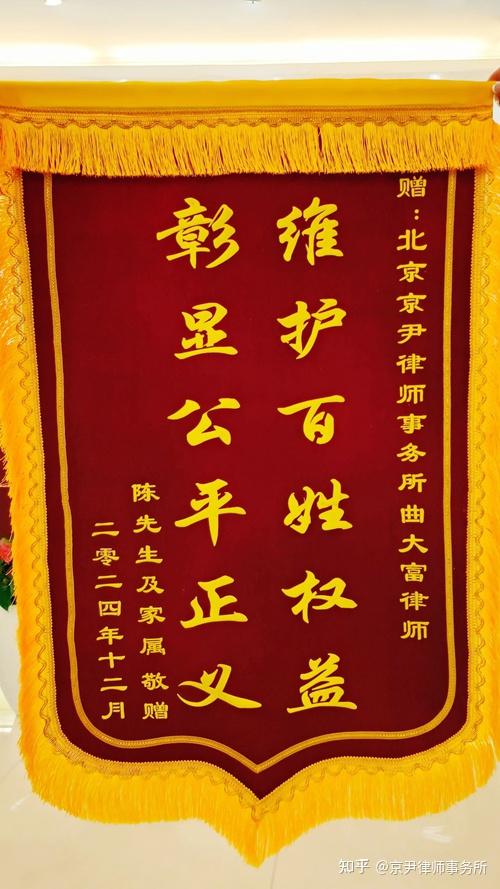 赠：北京京尹律师事务所曲大富律师
维护百姓权益
彰显公平正义
陈先生及家属敬赠
二零二四年十二月
知乎 @京尹律师事务所